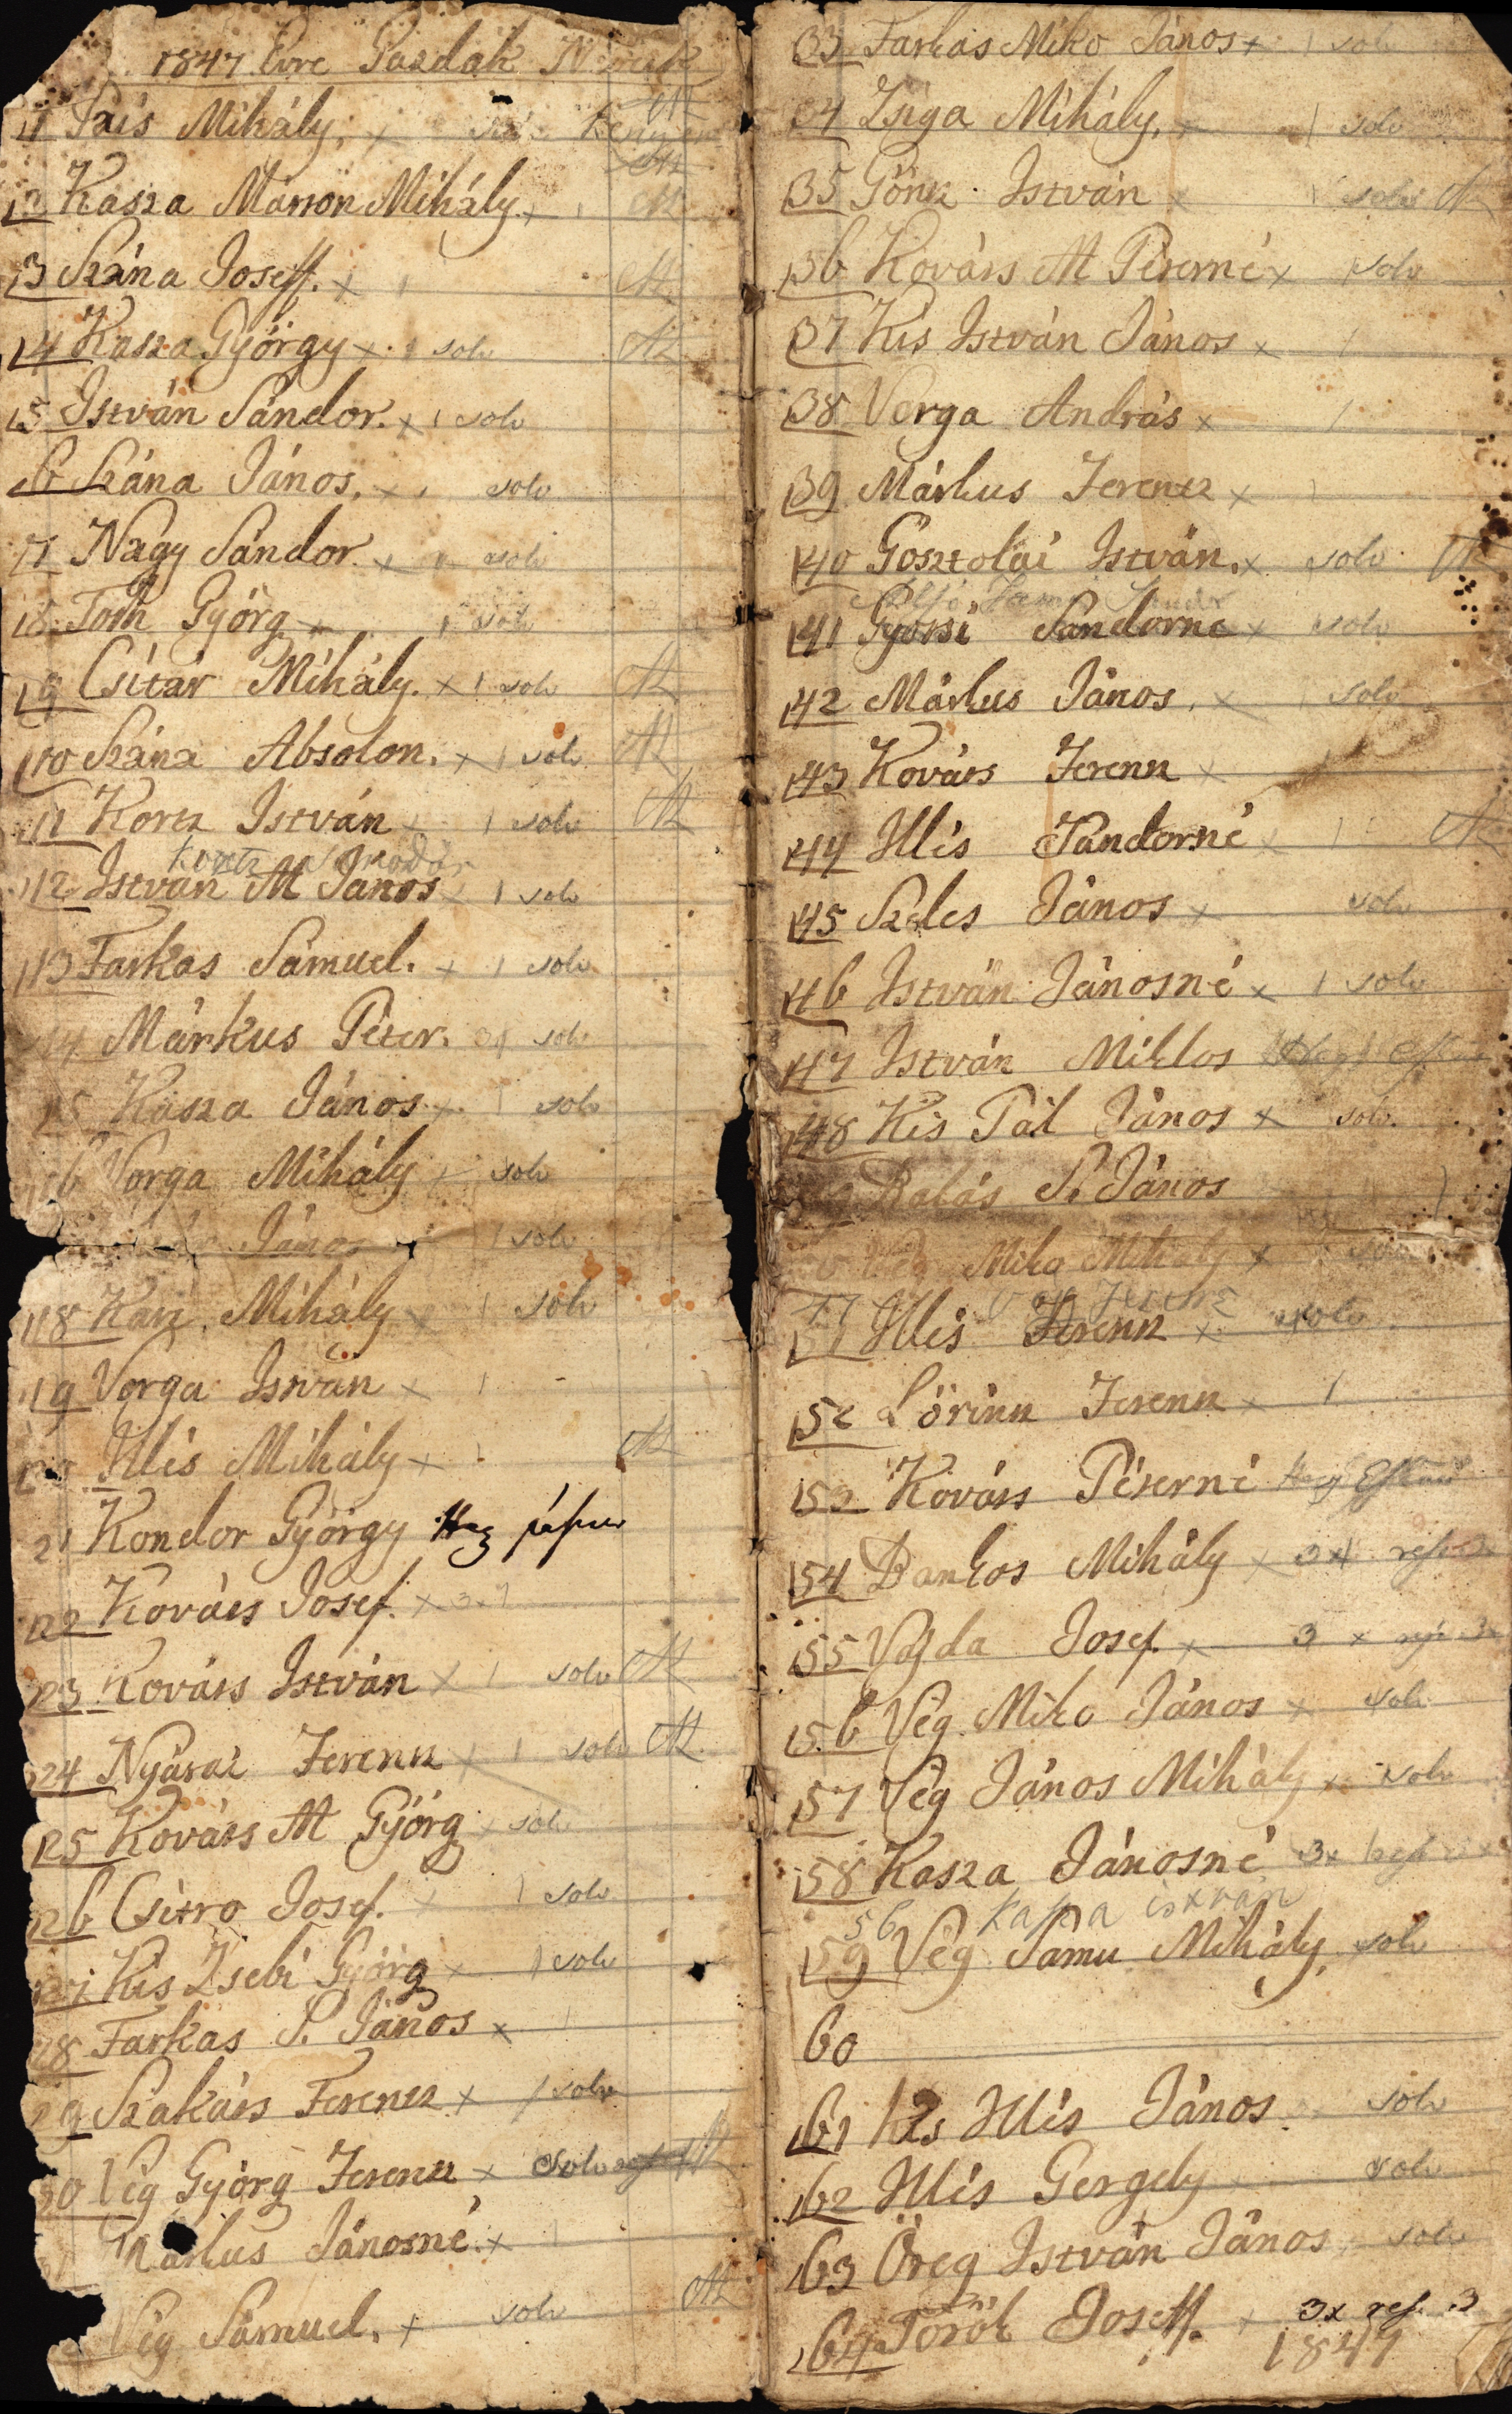 1847 Évre Gazdák
1 Pais Mihály. x
2 Kasza Marron Mihály. x
3 Szána Joseff. x 1
4 Kasza György x 1 solv
5 István Sándor. x 1 solv
6 Szána János. x 1 solv
7 Nagy Sándor. x solv
8 Toth Györg x 1 solv
9 Csitár Mihály. x 1 solv
10 Szána Absolon. x 1 solv
11 Kortz István x 1 solv
12 István M János 1 solv
13 Farkas Sámuel. x 1 solv
14 Márkus Péter. solv
15 Kasza János x 1 solv
16 Varga Mihály solv
János 1 solv
18 Kari Mihály 1 solv
19 Varga István x 1
Illés Mihály x 1
21 Kondor György
22 Kováts Josef. x
23 Kováts István x 1 solv
24 Nyárai Ferencz 1 solv
25 Kováts M Györg solv
26 Csitro Josef. x 1 solv
27 Kis Zsebi Györg x 1 solv
28 Farkas P. János x
29 Szakáts Ferentz x 1 solv
30 Vég Györg Ferencz x solv
Márkus Jánosné x
Vég Sámuel. x solv
33 Farkas Miko János x 1 solv
34 Zsiga Mihály. 1 solv
35 Göntz István x 1 solv
36 Kováts M Péterné x 1 solv
37 Kis István János x 1
38 Varga András x 1
39 Márkus Ferentz x 1
40 Gosztolai István. x solv
41 Gyorsi Sándorné x solv
42 Márkus János. x solv
43 Kováts Ferencz x 1
44 Illés Sándorné x 1
45 Szeles János x solv
46 István Jánosné x 1 solv
47 István Miklos
48 Kis Pál János x solv.
Balás P. János
Miko Mihály x
51 Illés Ferencz x solv
52 Lörincz Ferencz x 1
53 Kováts Péterné
54 Bankos Mihály x 3x
55 Vajda Josef. x 3 x
56 Vég Miko János x solv
57 Vég János Mihály x solv
58 Kasza Jánosné 3x
56 Kasza István
59 Vég Samu Mihály. solv
60
61 Kis Illés János solv
62 Illés Gergely solv
63 Öreg István János solv
64 Török Joseff. 3x ref. 3
1847